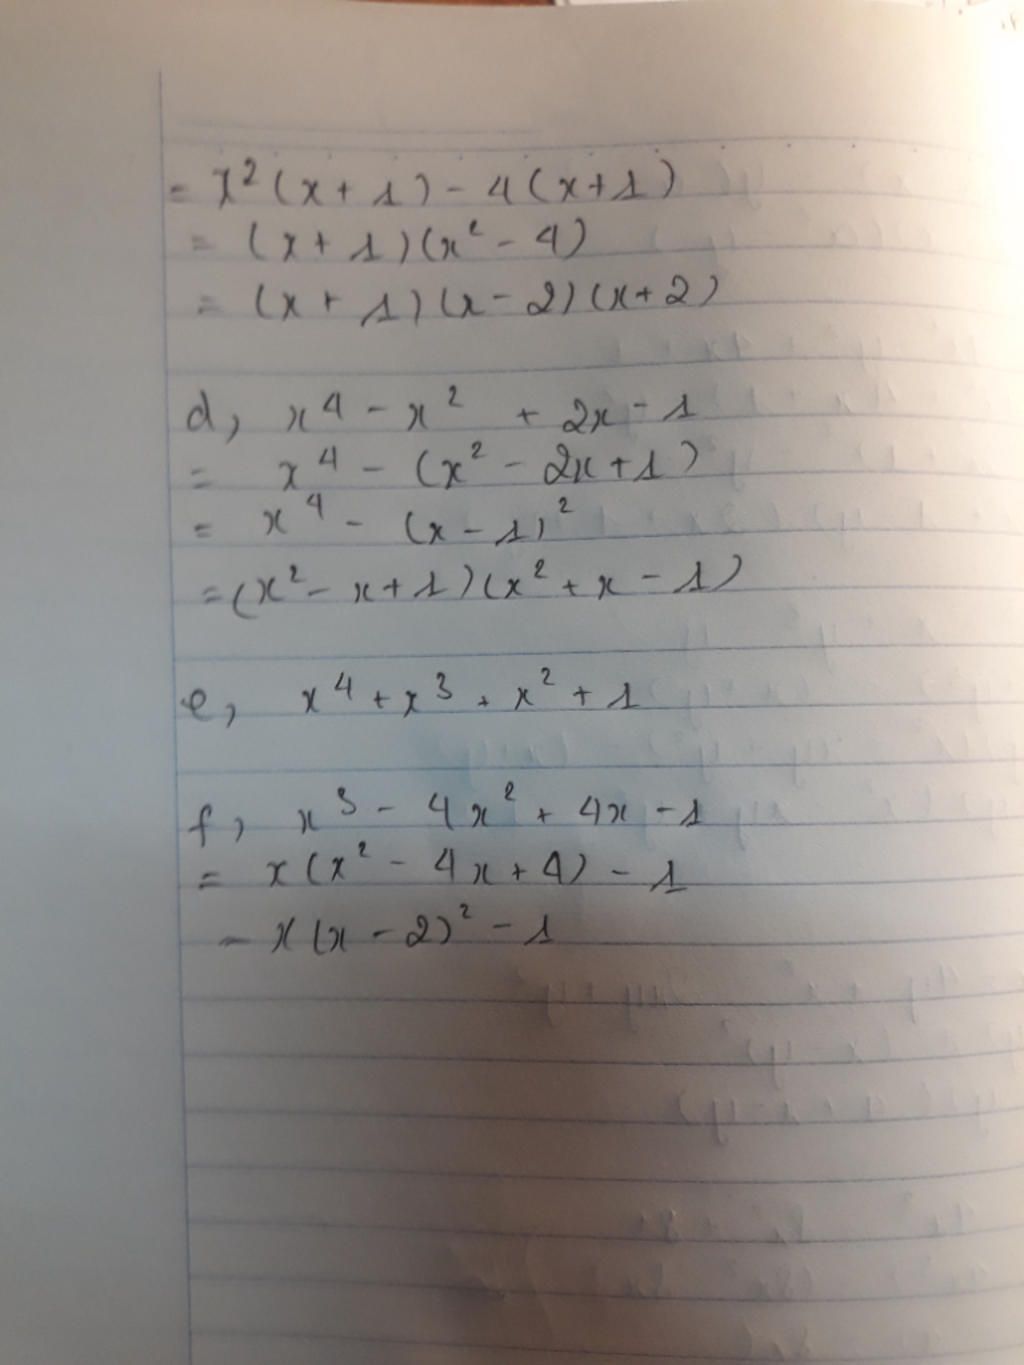 = x²(x+1) - 4(x+1)
= (x+1)(x² - 4)
= (x+1)(x-2)(x+2)
d, x⁴ - x² + 2x - 1
= x⁴ - (x² - 2x + 1)
= x⁴ - (x - 1)²
= (x² - x + 1)(x² + x - 1)
e, x⁴ + x³ + x² + 1
f, x³ - 4x² + 4x - 1
= x(x² - 4x + 4) - 1
- x(x - 2)² - 1